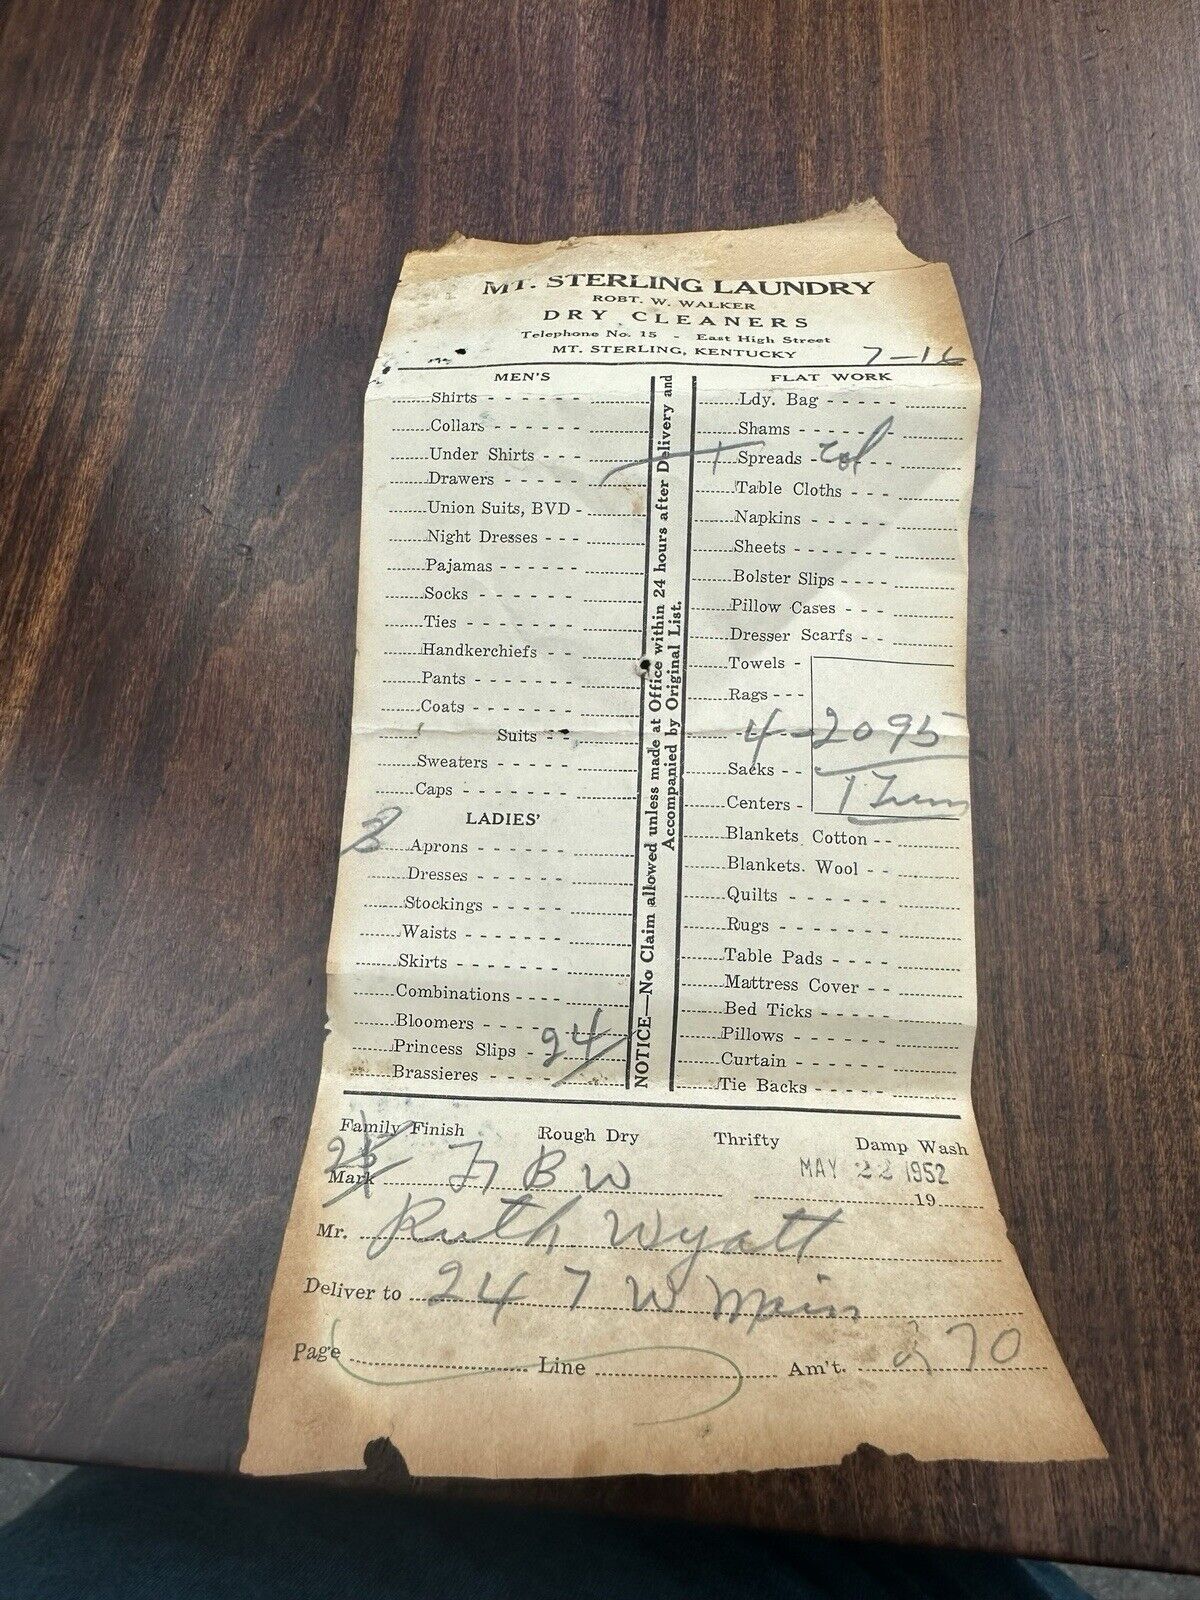 MT. STERLING LAUNDRY
ROBT. W. WALKER
DRY CLEANERS
Telephone No. 15 - East High Street
MT. STERLING, KENTUCKY
7-16
MEN'S
Shirts
Collars
Under Shirts
Drawers
Union Suits, BVD
Night Dresses
Pajamas
Socks
Ties
Handkerchiefs
Pants
Coats
Suits
Sweaters
Caps
LADIES'
3 Aprons
Dresses
Stockings
Waists
Skirts
Combinations
Bloomers
Princess Slips 24
Brassieres
NOTICE—No Claim allowed unless made at Office within 24 hours after Delivery and
Accompanied by Original List.
FLAT WORK
Ldy. Bag
Shams
1 Spreads
Table Cloths
Napkins
Sheets
Bolster Slips
Pillow Cases
Dresser Scarfs
Towels
Rags
4-2095
Sacks
Centers 1
Blankets Cotton
Blankets. Wool
Quilts
Rugs
Table Pads
Mattress Cover
Bed Ticks
Pillows
Curtain
Tie Backs
Family Finish Rough Dry Thrifty Damp Wash
Mark B W MAY 22 1952
19
Mr. Ruth Wyatt
Deliver to 247 W Main
Page Line Am't. 2 70